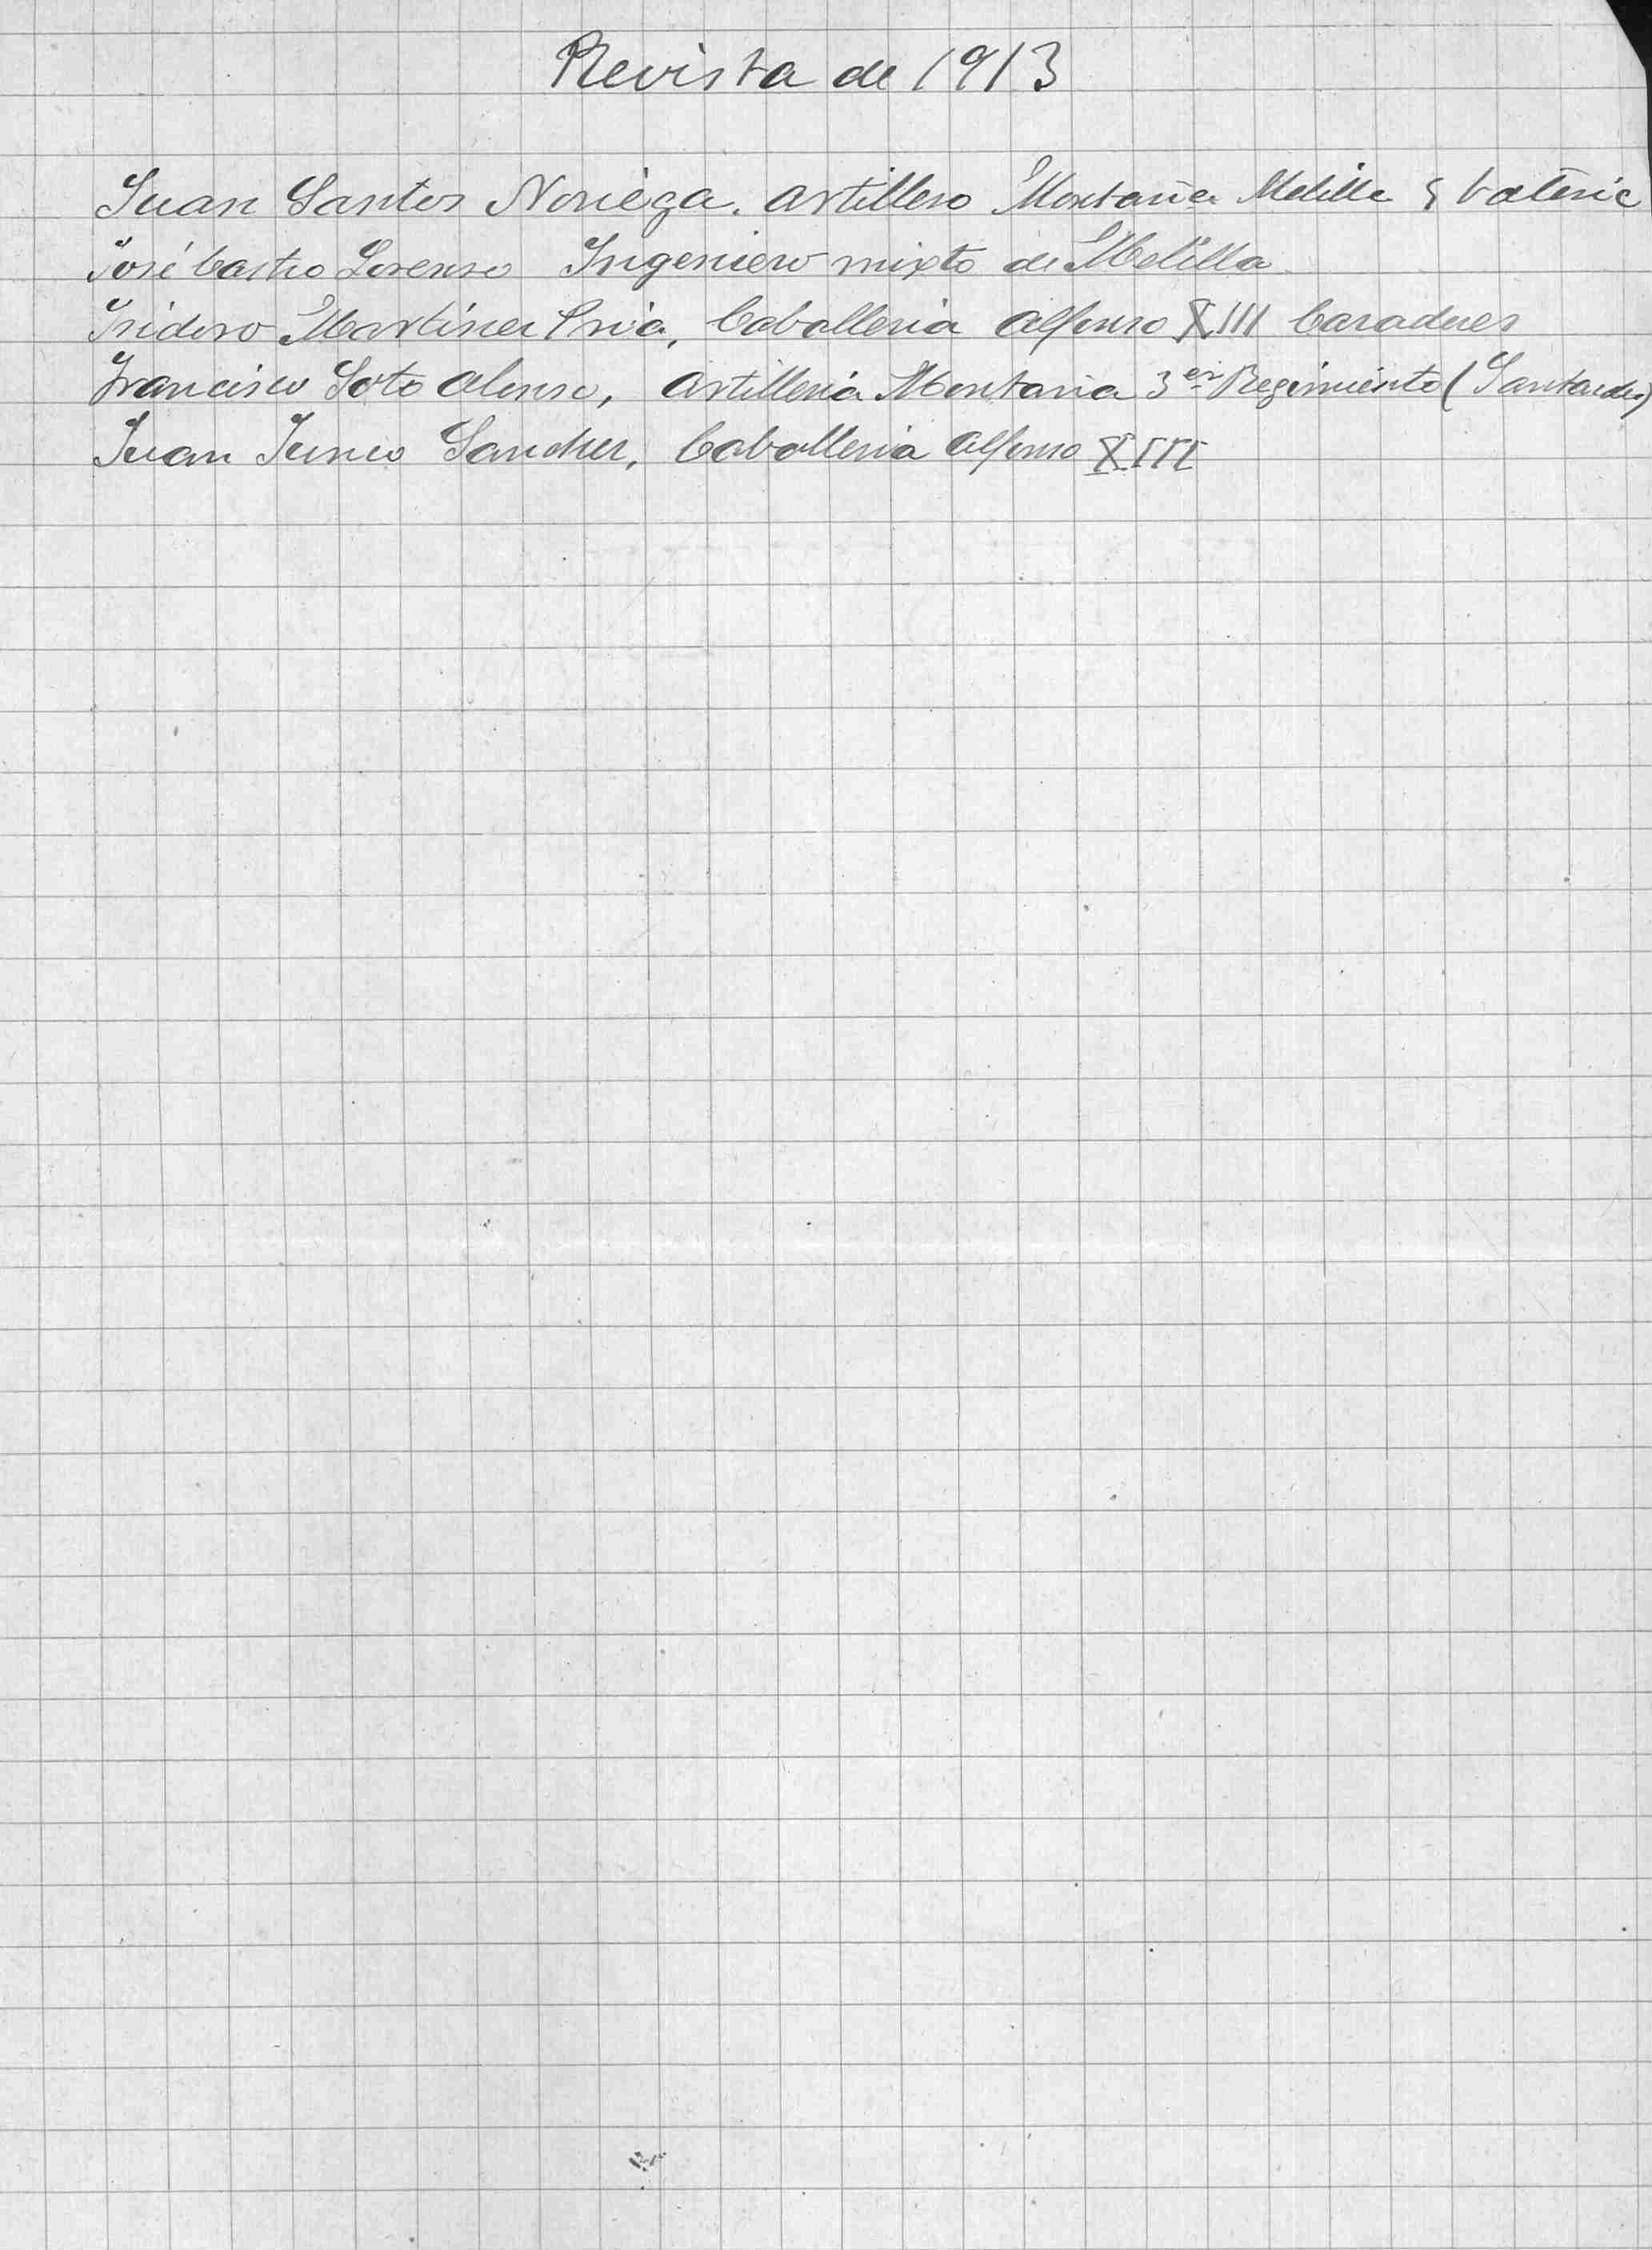 Revista de 1913
Juan Santos Noriega. Artillero Montaña Melilla 5 batería
José Castro Lorenzo Ingeniero mixto de Melilla
Isidoro Martinez Pría, Caballeria Alfonso XIII Cazadores
Francisco Soto Alonso, Artilleria Montaña 3er Regimiento (Santander)
Juan Junco Sanchez, Caballeria Alfonso XIII